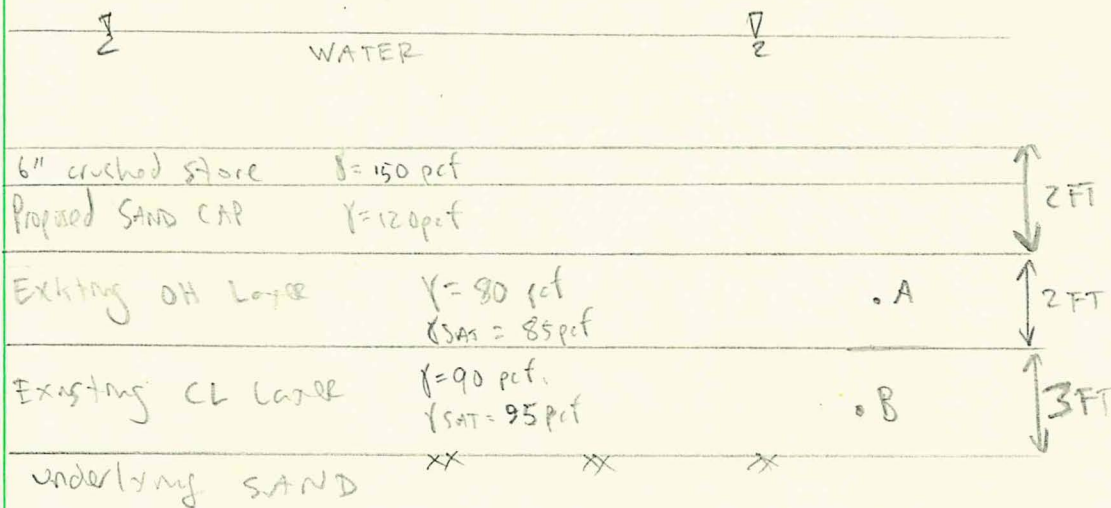 WATER
6" crushed stone γ= 150 pcf
2 FT
Proposed SAND CAP γ=120pcf
Existing OH Layer γ= 80 pcf
γSAT = 85pcf
. A
2 FT
Existing CL Layer γ=90 pcf.
γSAT= 95pcf
. B
3 FT
underlying SAND